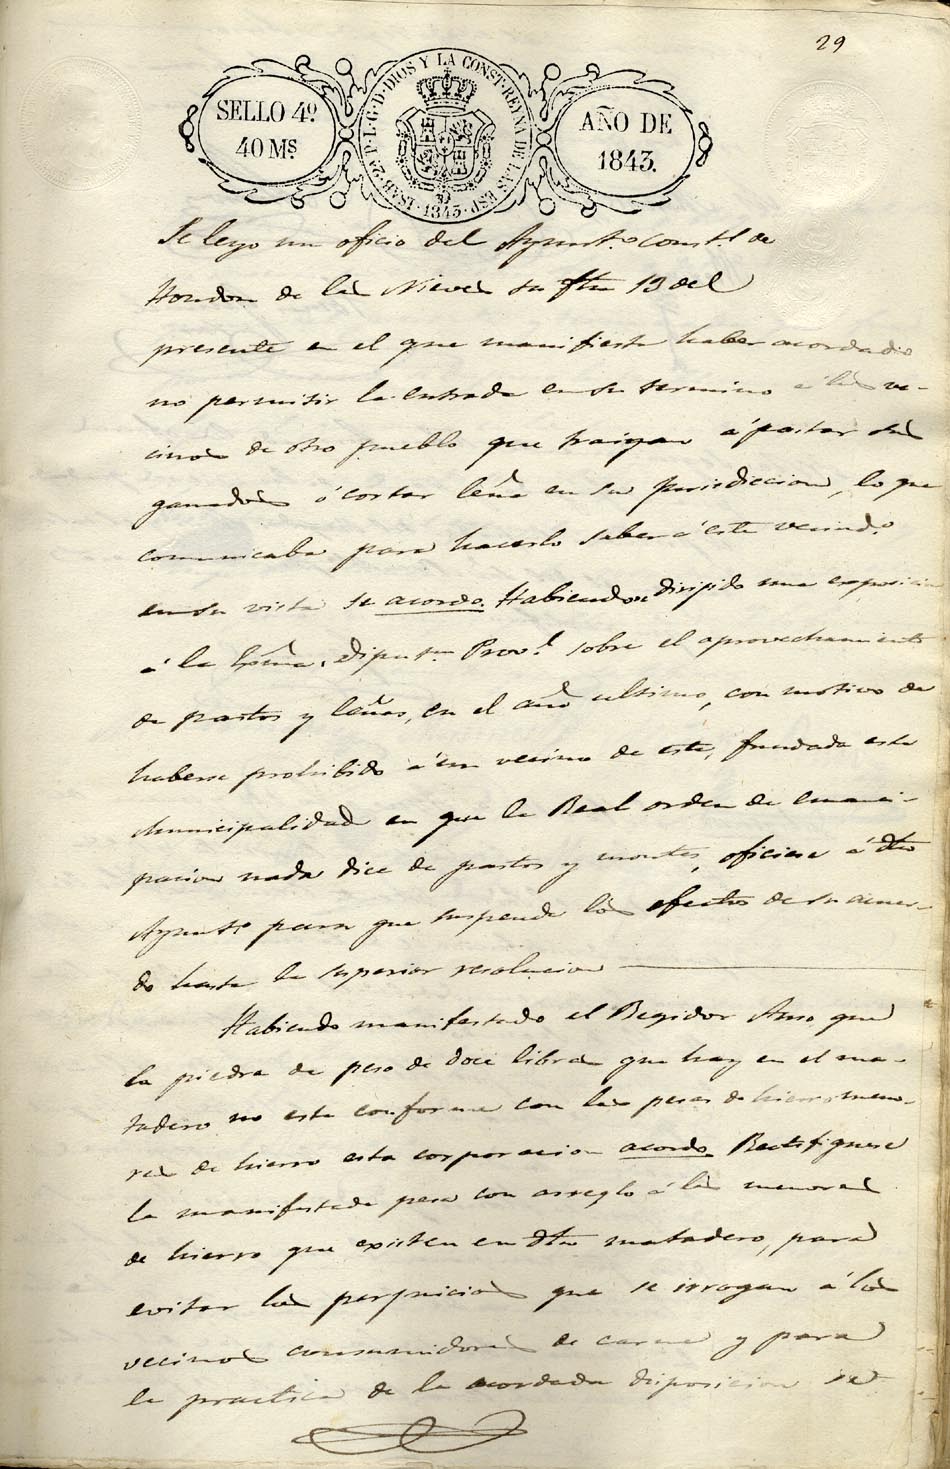 29
SELLO 4º.
40 Ms
ISAB. 2ª P. L. G. D. DIOS Y LA CONST. REYNA DE LAS ESP. 1843.
AÑO DE
1843.
Se leyo un oficio del Ayuntº Constl de
Hondon de las Nieves su fha 13 del
presente en el que manifiesta haber acordado
no permitir la entrada en su termino á los ve-
cinos de otro pueblo que traigan á pastar sus
ganados ó cortar leña en su jurisdiccion, lo que
comunicaba para hacerlo saber á este vecindº.
en su vista se acordo. Habiendose dirijido una exposicion
á la Exma. Diputon Provl. sobre el aprovechamiento
de pastos y leñas, en el año ultimo, con motivo de
haberse prohibido á un vecino de este, fundada esta
Municipalidad en que la Real orden de emanci-
pacion nada dice de pastos y montes, oficiese á dho
Ayuntº para que suspenda los efectos de su acuer-
do hasta la superior resolucion
Habiendo manifestado el Regidor que
la piedra de peso de doce libras que hay en el ma-
tadero no esta conforme con las pesas de hierro meno-
res de hierro esta corporacion acordo Rectifiquese
la manifestada pesa con arreglo á las menores
de hierro que existen en dho matadero, para
evitar los perjuicios que se irrogan á los
vecinos consumidores de carne y para
la practica de la acordada disposicion se